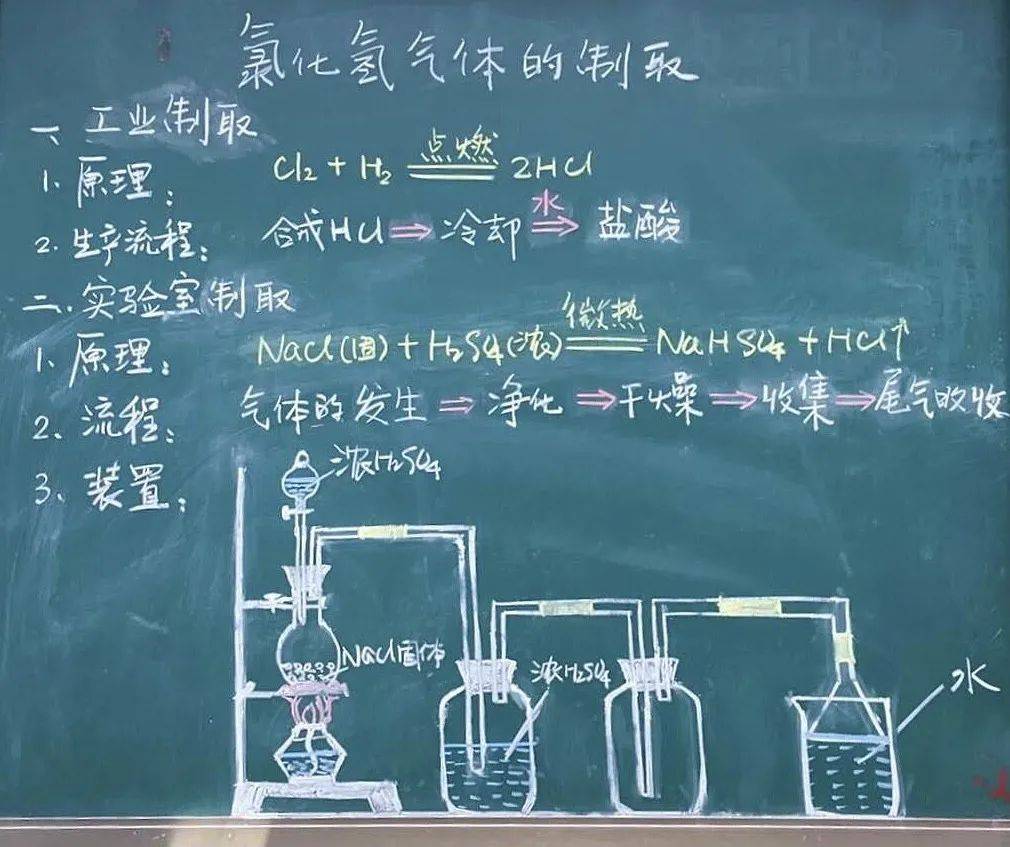 氯化氢气体的制取
一、工业制取
1、原理：Cl₂ + H₂ 点燃 2HCl
2、生产流程：合成HCl ⇒ 冷却 水⇒ 盐酸
二、实验室制取
1、原理：NaCl(固) + H₂SO₄(浓) 微热 NaHSO₄ + HCl↑
2、流程：气体的发生 ⇒ 净化 ⇒ 干燥 ⇒ 收集 ⇒ 尾气吸收
3、装置：
浓H₂SO₄
NaCl固体
浓H₂SO₄
水